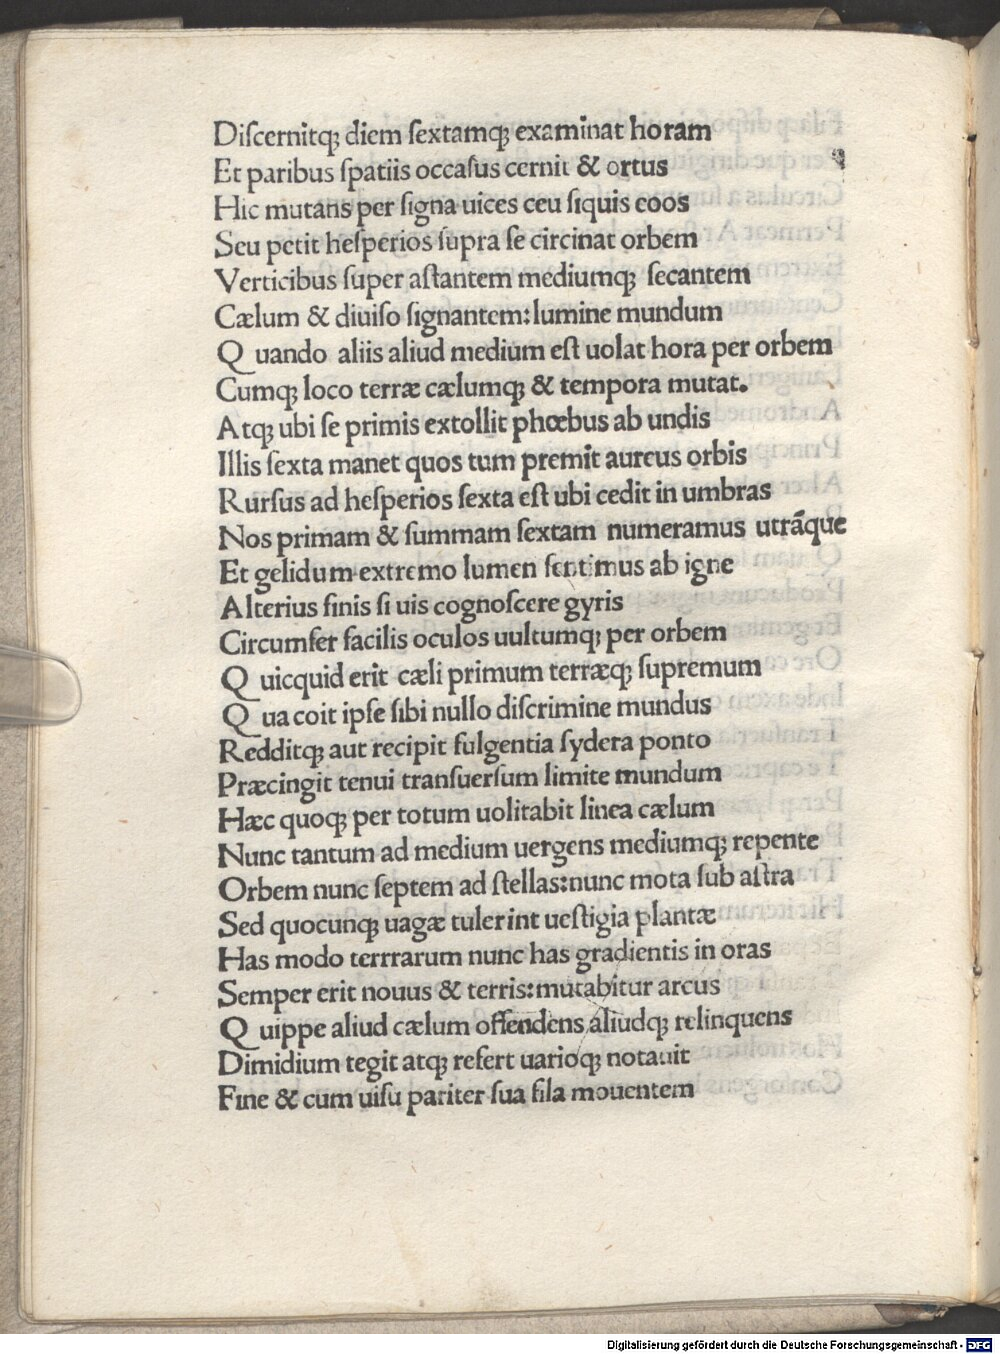 Diſcernitqꝫ diem ſextamqꝫ examinat horam
Et paribus ſpatiis occaſus cernit & ortus
Hic mutans per ſigna uices ceu ſiquis eoos
Seu petit heſperios ſupra ſe circinat orbem
Verticibus ſuper aſtantem mediumqꝫ ſecantem
Cælum & diuiſo ſignantem: lumine mundum
Q uando aliis aliud medium eſt uolat hora per orbem
Cumqꝫ loco terræ cælumqꝫ & tempora mutat.
Atqꝫ ubi ſe primis extollit phœbus ab undis
Illis ſexta manet quos tum premit aureus orbis
Rurſus ad heſperios ſexta eſt ubi cedit in umbras
Nos primam & ſummam ſextam numeramus utrãque
Et gelidum extremo lumen ſentimus ab igne
Alterius finis ſi uis cognoſcere gyris
Circumfer facilis oculos uultumqꝫ per orbem
Q uicquid erit cæli primum terræqꝫ ſupremum
Q ua coit ipſe ſibi nullo diſcrimine mundus
Redditqꝫ aut recipit fulgentia ſydera ponto
Præcingit tenui tranſuerſum limite mundum
Hæc quoqꝫ per totum uolitabit linea cælum
Nunc tantum ad medium uergens mediumqꝫ repente
Orbem nunc ſeptem ad ſtellas: nunc mota ſub aſtra
Sed quocunqꝫ uagæ tulerint ueſtigia plantæ
Has modo terrrarum nunc has gradientis in oras
Semper erit nouus & terris: mutabitur arcus
Q uippe aliud cælum offendens aliudqꝫ relinquens
Dimidium tegit atqꝫ refert uarioqꝫ notauit
Fine & cum uiſu pariter ſua fila mouentem
Digitalisierung gefördert durch die Deutsche Forschungsgemeinschaft - DFG